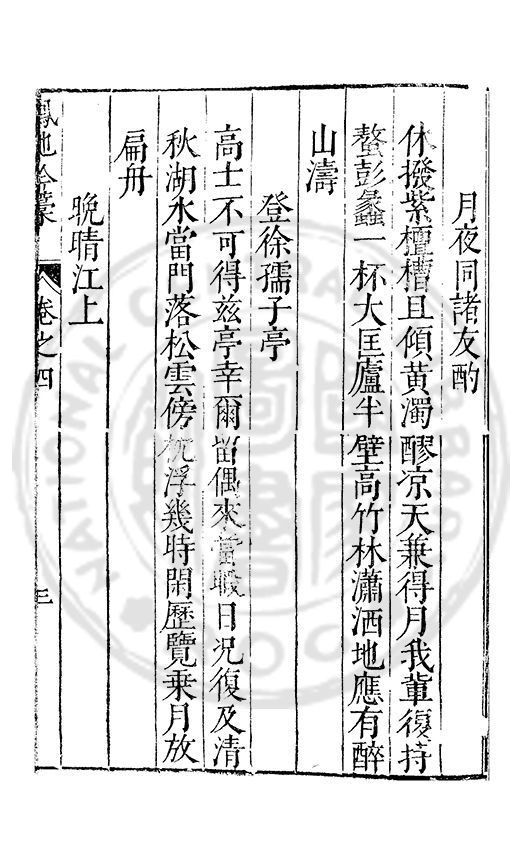 月夜同諸友酌
休撥紫檀槽且傾黃濁醪凉天兼得月我輩復持
螯彭蠡一杯大匡廬半壁高竹林瀟洒地應有醉
山濤
登徐孺子亭
高士不可得兹亭幸爾留偶來當暇日況復及清
秋湖水當門落松雲傍枕浮幾時閑歷覽乗月放
扁舟
晚晴江上
卷之四
三